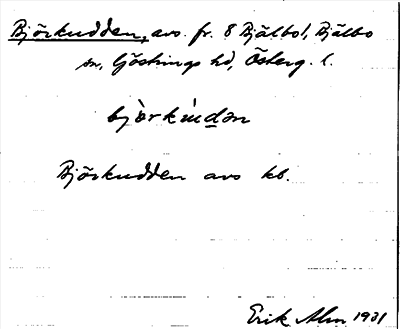 Björkudden, avs. fr. 8 Bjälbo, Bjälbo
sn, Göstrings hd, Österg. l.
bjòrkùdən
Björkudden avs kb.
Erik Alm 1931